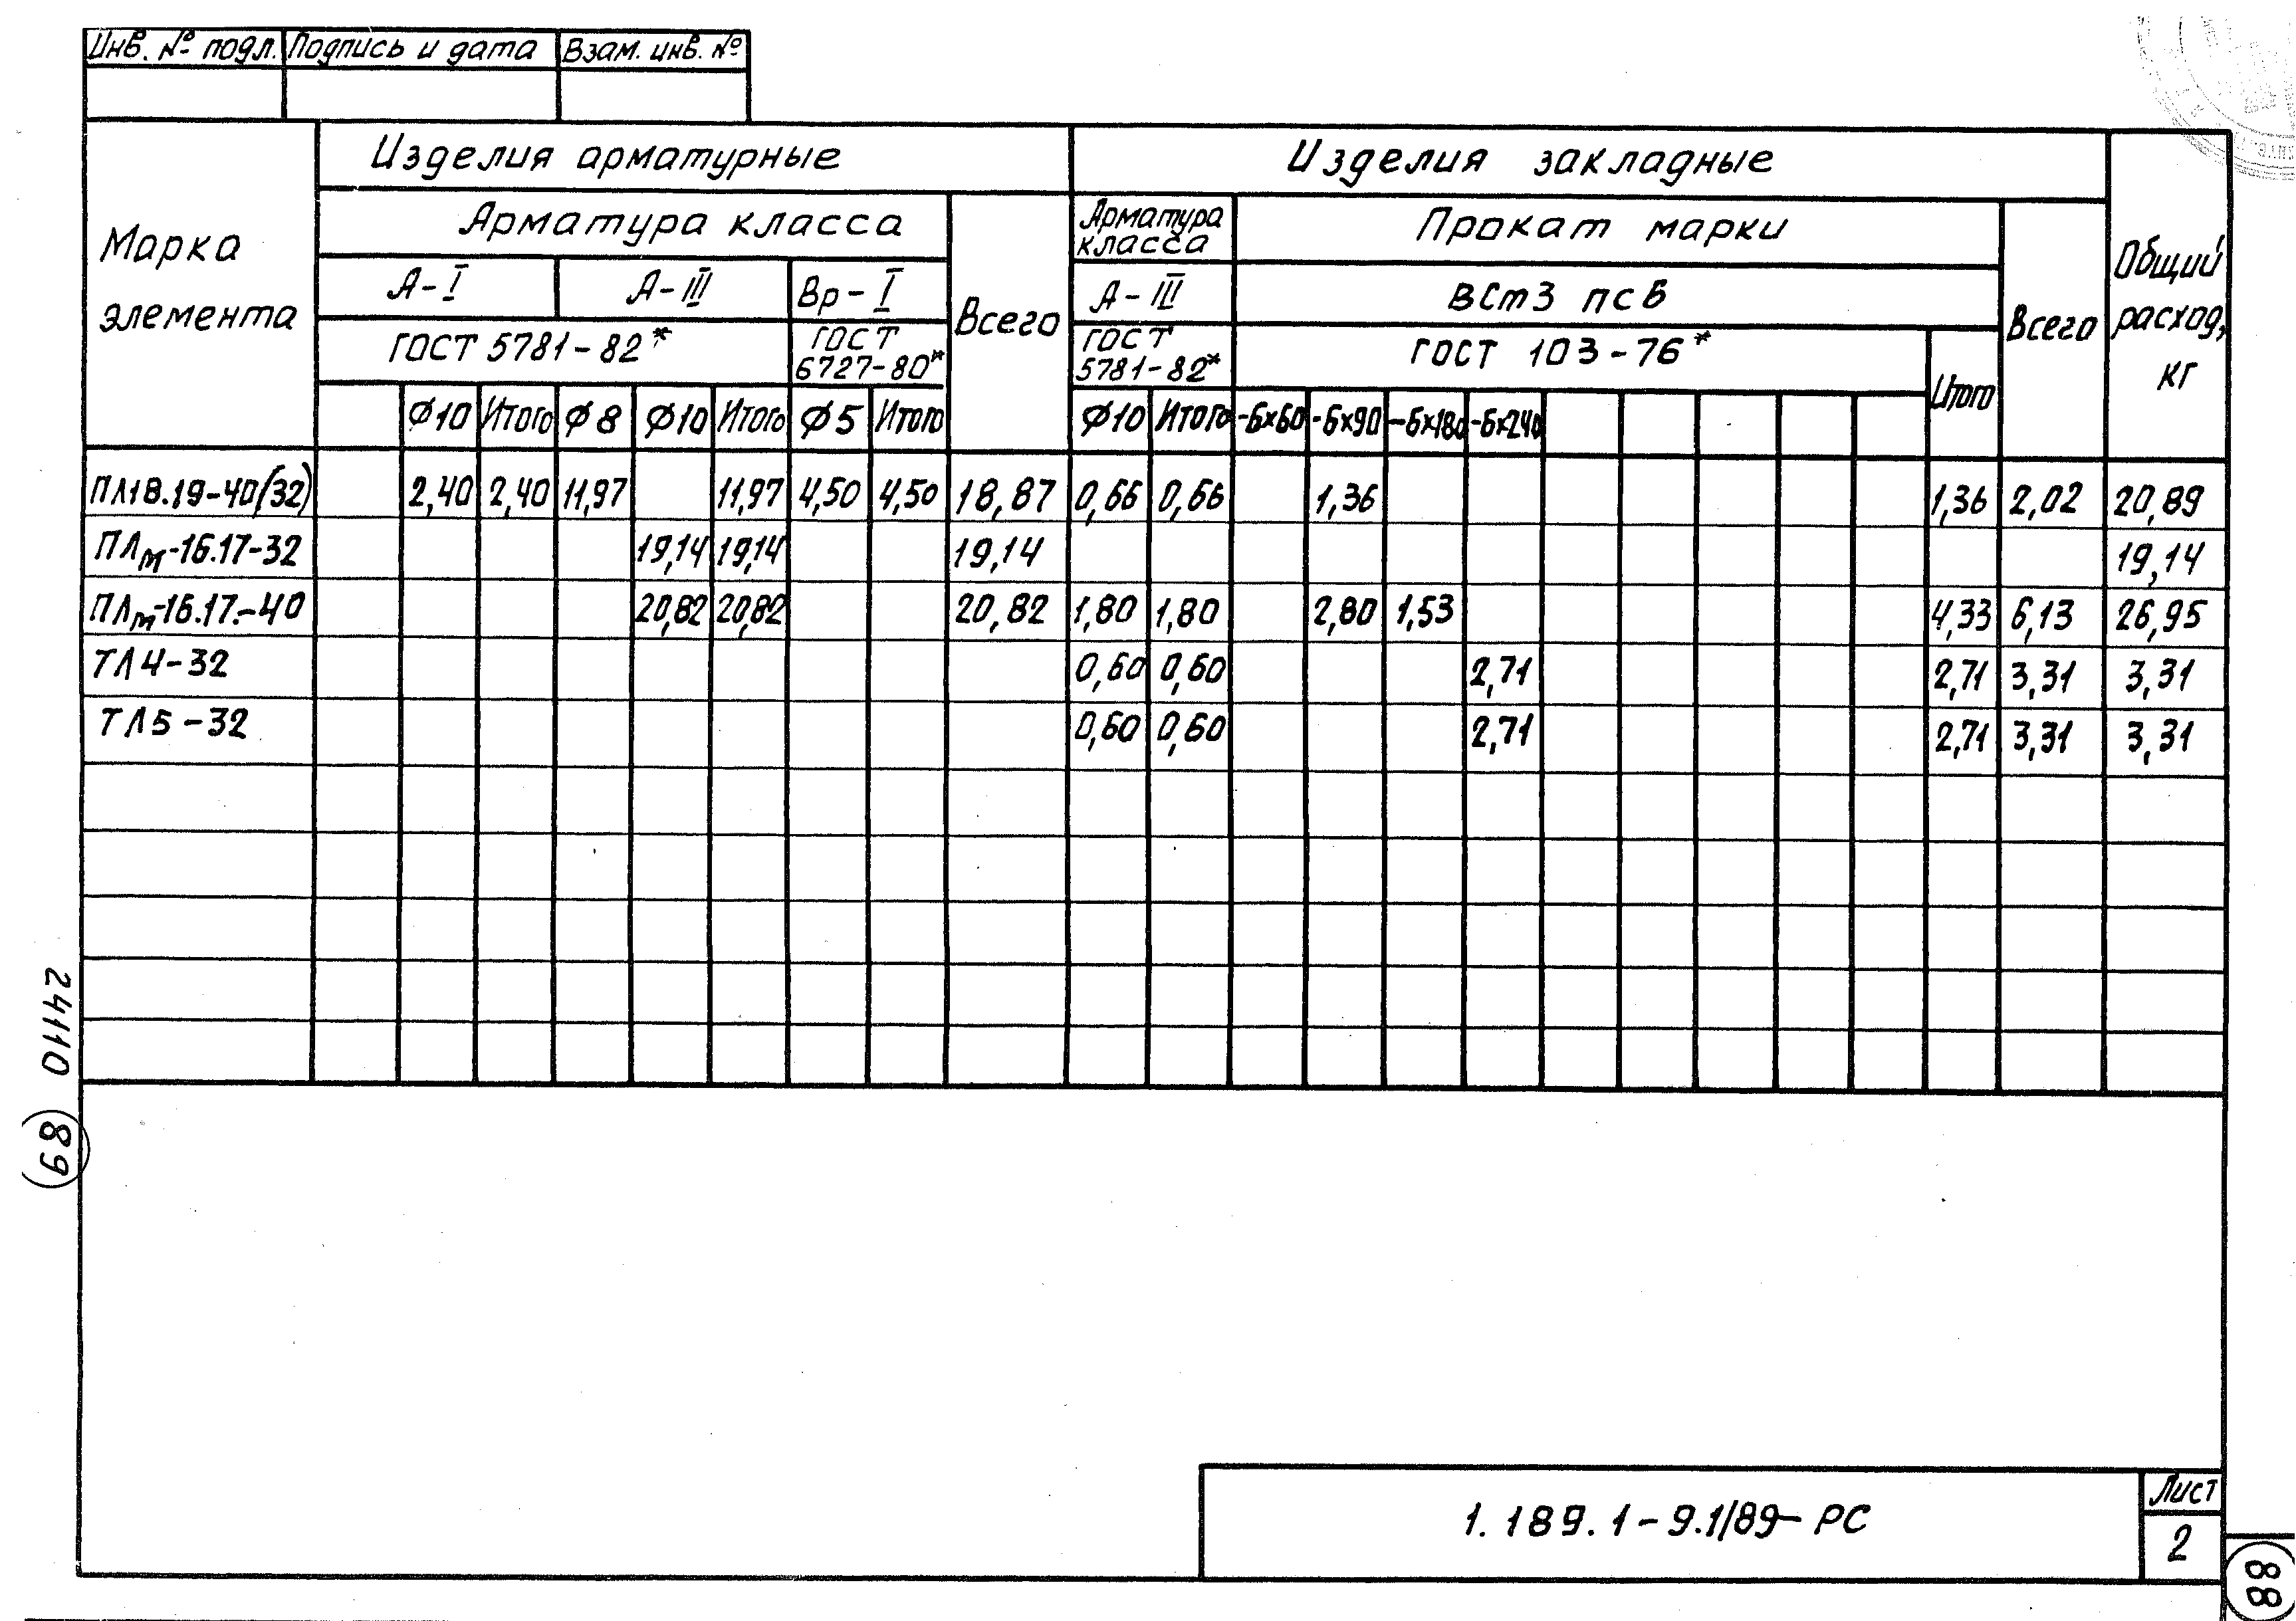 Инв. № подл. Подпись и дата Взам. инв. №
Изделия арматурные Изделия закладные
Марка элемента
Арматура класса
Всего
Арматура класса
Прокат марки
Всего
Общий расход, кг
А-I А-III Вр-I А-III ВСт3 пс6
ГОСТ 5781-82* ГОСТ 6727-80* ГОСТ 5781-82* ГОСТ 103-76* Итого
Ø10 Итого Ø8 Ø10 Итого Ø5 Итого Ø10 Итого -6х60 -6х90 -6х180 -6х240
ПЛ18.19-40(32) 2,40 2,40 11,97 11,97 4,50 4,50 18,87 0,66 0,66 1,36 1,36 2,02 20,89
ПЛм-16.17-32 19,14 19,14 19,14 19,14
ПЛм-16.17.-40 20,82 20,82 20,82 1,80 1,80 2,80 1,53 4,33 6,13 26,95
ТЛ4-32 0,60 0,60 2,71 2,71 3,31 3,31
ТЛ5-32 0,60 0,60 2,71 2,71 3,31 3,31
24110 89
1.189.1-9.1/89-РС
Лист
2
88